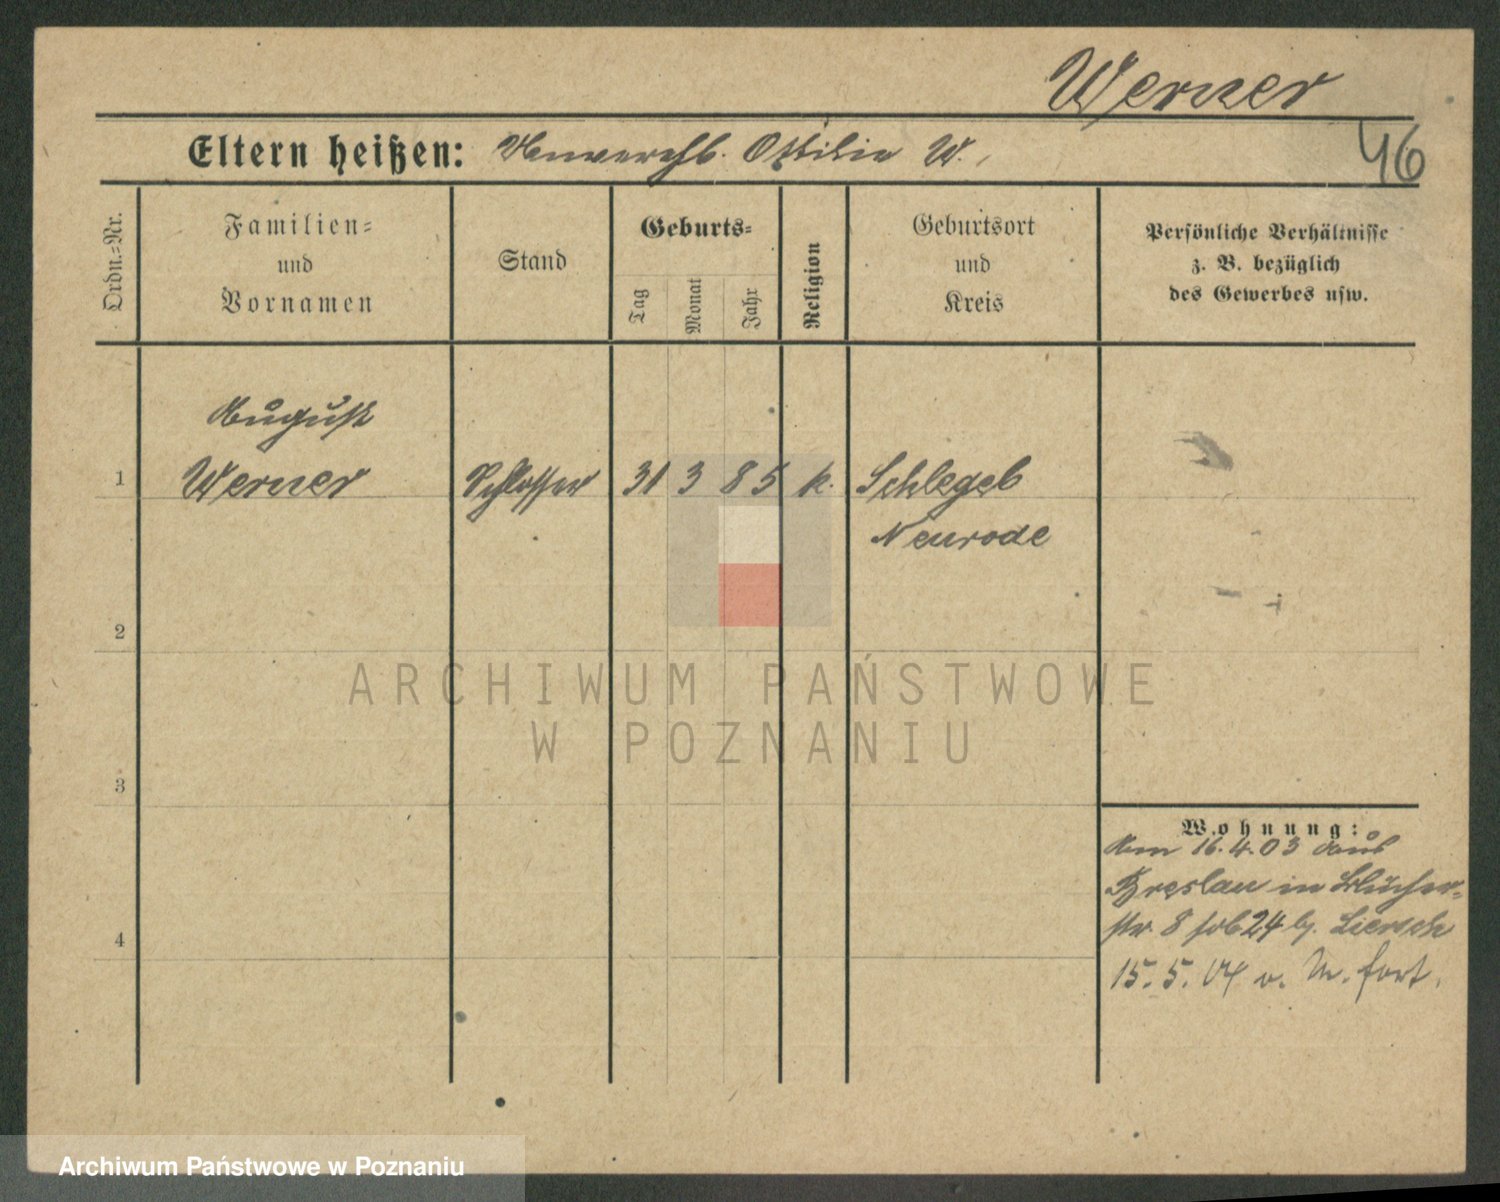 Werner
46
Eltern heißen: Unverehl. Ottilie W.
Ordn.=Nr.
Familien=
und
Vornamen
Stand
Geburts=
Tag
Monat
Jahr
Religion
Geburtsort
und
Kreis
Persönliche Verhältnisse
z. B. bezüglich
des Gewerbes usw.
August
1 Werner Schlosser 31 3 85 k. Schlegel
Neurode
2
3
4
Wohnung:
Am 16.4.03 aus
Breslau in Blücher=
str 8 24 b. Liersch
15.5.04 o. M. fort.
ARCHIWUM PAŃSTWOWE
W POZNANIU
Archiwum Państwowe w Poznaniu